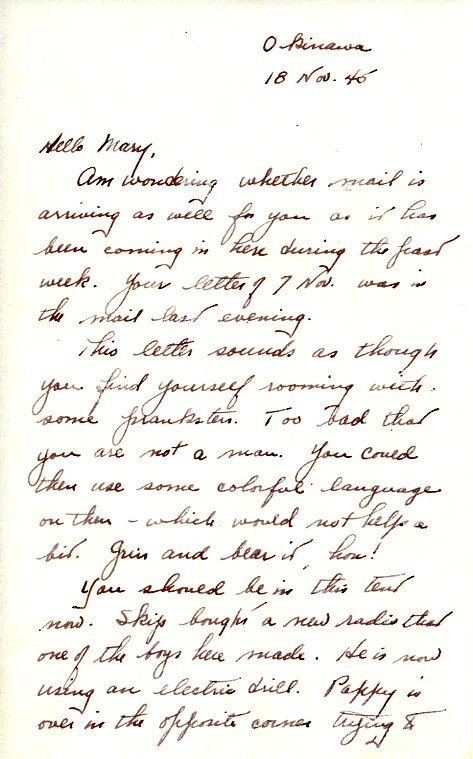 Okinawa
18 Nov. 45
Hello Mary,
Am wondering whether mail is
arriving as well for you as it has
been coming in here during the past
week. Your letter of 7 Nov. was in
the mail last evening.
This letter sounds as though
you find yourself rooming with
some pranksters. Too bad that
you are not a man. You could
then use some colorful language
on them - which would not help a
bit. Grin and bear it, hon!
You should be in this tent
now. Skip bought a new radio that
one of the boys here made. He is now
using an electric drill. Pappy is
over in the opposite corner trying to